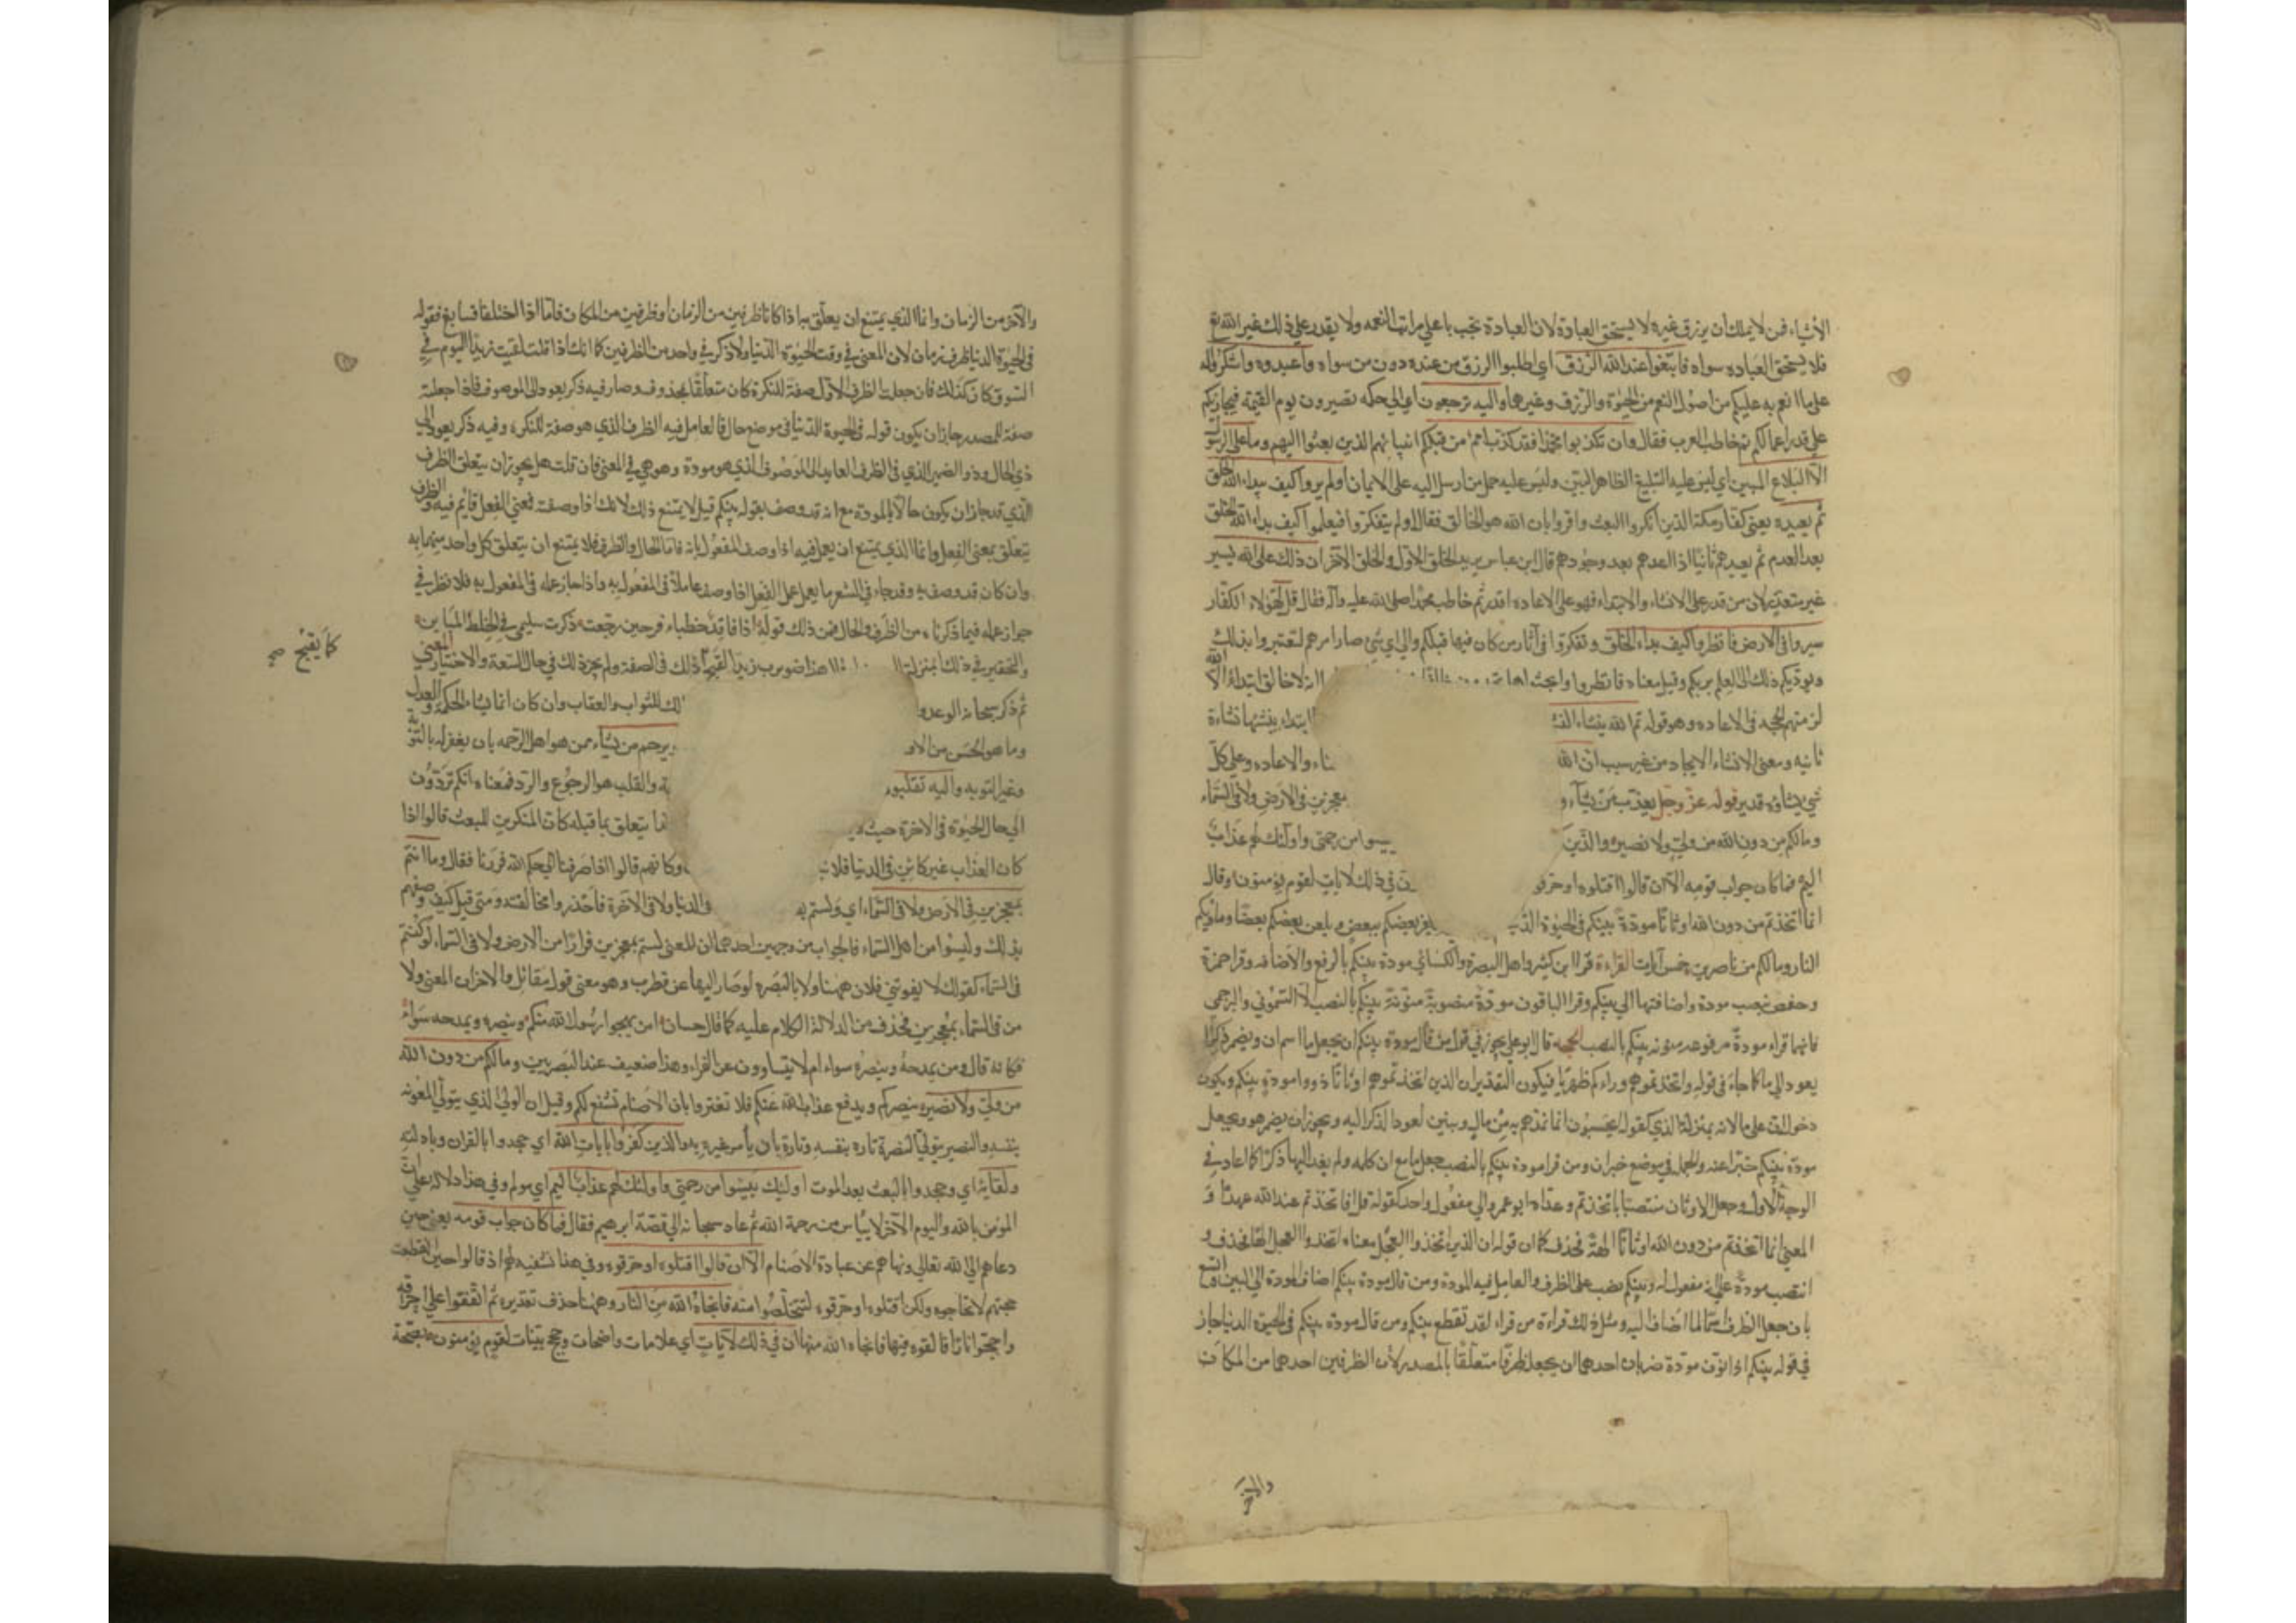 الأشياء فمن لا يملك أن يرزق غيره لا يستحق العبادة لان العبادة تجب باعلى مراتب النعمه ولا يقدر على ذلك غير الله تع
فلا يستحق العباده سواه فابتغوا عند الله الرزق اي اطلبوا الرزق من عنده دون من سواه واعبدوه واشكروا له
على ما انعم به عليكم من اصول النعم من الحيوة والرزق وغيرها واليه ترجعون اي الي حكمه تصيرون يوم القيمة فيجازيكم
على قدر اعمالكم ثم خاطب العرب فقال وان تكذبوا محمدا فقد كذب امم من قبلكم انبيائهم الذين بعثوا اليهم وما على الرسول
الا البلاغ المبين اي ليس عليه الا التبليغ الظاهر البين وليس عليه حمل من ارسل اليه على الايمان اولم يروا كيف يبداء الله الخلق
ثم يعيده يعني كفار مكة الذين انكروا البعث واقروا بان الله هو الخالق فقال اولم يتفكروا فيعلموا كيف بداء الله الخلق
بعد العدم ثم يعيدهم ثانيا اذا اعدمهم بعد وجودهم قال ابن عباس يريد الخلق الاول والخلق الآخر ان ذلك على الله يسير
غير متعذر لان من قدر على الانشاء والابتداء فهو على الاعاده اقدر ثم خاطب محمدا صلى الله عليه وآله فقال قل لهؤلاء الكفار
سيروا في الارض فانظروا كيف بداء الخلق وتفكروا في آثار من كان فيها قبلكم والي اي شي صار امرهم لتعتبروا بذلك
ويؤديكم ذلك الى العلم بربكم وقيل معناه فانظروا وابحثوا هل انه لا خالق ابتداء الا الله
لزمتهم الحجه في الاعاده وهو قوله ثم الله ينشاء ابتداء ينشئها نشاءة
ثانيه ومعنى الانشاء الايجاد من غير سبب ان الله والاعاده وعلى كل
شي يشاؤه قدير قوله عز وجل يعذب من يشآء و معجزين في الارض ولا في السماء
ومالكم من دون الله من ولي ولا نصير والذين يئسوا من رحمتى واولئك لهم عذاب
اليم فما كان جواب قومه الآ ان قالوا اقتلوه او حرقو في ذلك لآيات لقوم يؤمنون وقال
انما اتخذتم من دون الله اوثانا مودة بينكم في الحيوة بعضكم ببعض ويلعن بعضكم بعضا وماويكم
النار ومالكم من ناصرين خمس آيات القراءة قرا ابن كثير واهل البصرة والكسائي مودة بينكم بالرفع والاضافه وقرا حمزة
وحفص بنصب مودة واضافتها الي بينكم وقرا الباقون مودة منصوبة منونة بينكم بالنصب الا الشموني والبرجمي
فانهما قراء مودة مرفوعه منونه بينكم بالنصب الحجه قال ابو علي يجوز في قول من قال مودة بينكم ان يجعل ما اسم ان ويضمر ذكرا
يعود الي ما كما جاء في قوله واتخذتموهم وراءكم ظهريا فيكون التقدير ان الذين اتخذتموهم اوثانا ذووا مودة بينكم ويكون
دخول ان على ما لانه بمنزلة الذي كقوله ايحسبون انما نمدهم به من مال وبنين لعود الذكر اليه ويجوز ان يضمر هو ويجعل
مودة بينكم خبرا عنه والجملة في موضع خبر ان ومن قرا مودة بينكم بالنصب جعل ما مع ان كلمه ولم يعد اليها ذكرا كما اعاد في
الوجه الأول وجعل الاوثان منتصبا باتخذتم وعداه ابو عمرو الي مفعول واحد كقوله قل اتخذتم عند الله عهدا و
المعنى انما اتخذتم من دون الله اوثانا الهة فحذف كما ان قوله ان الذين اتخذوا العجل معناه اتخذوا العجل الها فحذف و
انتصب مودة على انه مفعول له وبينكم نصب على الظرف والعامل فيه المودة ومن قال مودة بينكم اضاف المودة الي البين واتسع
بان جعل الظرف اسما لما اضاف اليه ومثل ذلك قراءة من قراء لقد تقطع بينكم ومن قال مودة بينكم في الحيوة الدنيا جاز
في قوله بينكم اذا نون مودة ضربان احدهما ان يجعله ظرفا متعلقا بالمصدر لأن الظرفين احدهما من المكان
والآخر
والآخر من الزمان وانما الذي يمتنع ان يعلق به اذا كانا ظرفين من الزمان او ظرفين من المكان فاما اذا اختلفا فسايغ فقوله
في الحيوة الدنيا ظرف زمان لان المعنى في وقت الحيوة الدنيا ولا ذكر في واحد من الظرفين كما انك اذا قلت لقيت زيدا اليوم في
السوق كان كذلك فان جعلت الظرف الاول صفة للنكرة كان متعلقا بمحذوف وصار فيه ذكر يعود الى الموصوف فاذا جعلته
صفة للمصدر جاز ان يكون قوله في الحيوة الدنيا في موضع حال والعامل فيه الظرف الذي هو صفة للنكره وفيه ذكر يعود الي
ذي الحال وذو الضمير الذي في الظرف العايد الى الموصوف الذي هو مودة وهو هي في المعنى فان قلت هل يجوز ان يتعلق الظرف
الذي قد جاز ان يكون حالا بالمودة مع انه قد وصف بقوله بينكم قيل لا يمتنع ذلك لانك اذا وصفته فمعنى الفعل قايم فيه والظرف
يتعلق بمعنى الفعل وانما الذي يمتنع ان يعمل فيه اذا وصف المفعول به فاما الحال والظرف فلا يمتنع ان يتعلق كل واحد منهما به
وان كان قد وصف به وقد جاء في الشعر ما يعمل عمل الفعل اذا وصف عاملا في المفعول به واذا جاز عمله في المفعول به فلا نظر في
جواز عمله فيما ذكرناه من الظرف والحال فمن ذلك قوله اذا فاقد خطباء فرحين رجعت ذكرت سليمى في الخليط المباين
والتحقير في ذلك بمنزلة هذا ضويرب زيدا لقبح ذلك في الصفة ولم يجز ذلك في حال السعة والاختيار المعنى
كما يقبح صح
ثم ذكر سبحانه الوعد و للثواب والعقاب وان كان انما يشاء الحكمة والعدل
وما هو الحسن من الا ويرحم من يشآء ممن هو اهل الرحمه بان يغفر له بالتوبة
وغير التوبه واليه تقلبون والقلب هو الرجوع والرد فمعناه انكم تردون
الي حال الحيوة في الآخرة حيث يتعلق بما قبله كان المنكرين للبعث قالوا اذا
كان العذاب غير كائن في الدنيا فلا وكانهم قالوا اذا صرفنا الي حكم الله فررنا فقال وما انتم
بمعجزين في الارض ولا في السماء اي ولستم به الدنيا ولا في الآخرة فاحذروا مخالفته ومتى قيل كيف وصفهم
بذلك وليسوا من اهل السماء فالجواب من وجهين احدهما ان المعنى لستم بمعجزين فرارا من الارض ولا في السماء لو كنتم
في السماء كقولك لا يفوتني فلان ههنا ولا بالبصره لو صار اليها عن قطرب وهو معنى قول مقاتل والاخر ان المعنى ولا
من في السماء بمعجزين فحذف من الدلالة الكلام عليه كما قال حسان امن يهجوا رسول الله منكم وينصره ويمدحه سواء
فكانه قال ومن يمدحه وينصره سواء ام لا يتساوون عن الفراء وهذا ضعيف عند البصريين ومالكم من دون الله
من ولي ولا نصير ينصركم ويدفع عذاب الله عنكم فلا تغتروا بان الاصنام تشفع لكم وقيل ان الولي الذي يتولى المعونه
بنفسه والنصير يتولى النصرة تارة بنفسه وتارة بان يأمر غيره به والذين كفروا بايات الله اي جحدوا بالقران وبادلته
ولقائه اي وجحدوا بالبعث بعد الموت اولئك يئسوا من رحمتي واولئك لهم عذاب اليم اي مولم وفي هذا دلاله على ان
المؤمن بالله واليوم الآخر لا ييأس من رحمة الله ثم عاد سبحانه الي قصة ابرهيم فقال فما كان جواب قومه يعني حين
دعاهم الي الله تعالى ونهاهم عن عبادة الاصنام الآ ان قالوا اقتلوه او حرقوه وفي هذا تسفيه لهم اذ قالوا حين انقطعت
حجتهم لا تحاجوه ولكن اقتلوه او حرقوه لتتخلصوا منه فانجاه الله من النار وههنا حذف تقديره ثم اتفقوا على احراقه
واججوا نارا فالقوه فيها فانجاه الله منها ان في ذلك لآيات اي علامات واضحات وحجج بينات لقوم يؤمنون بصحة